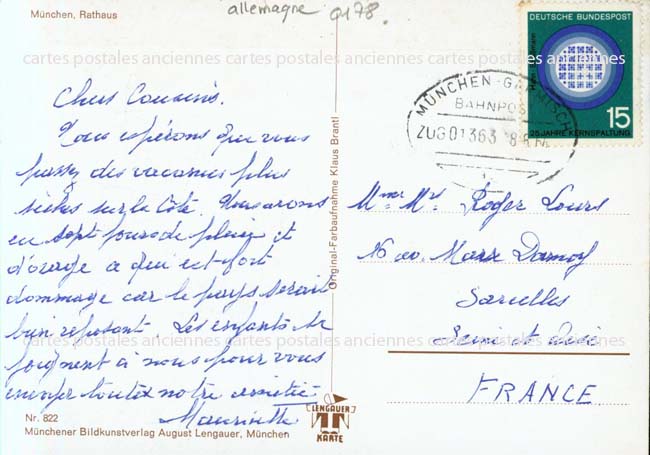 München, Rathaus
allemagne 0178.
cartes postales anciennes cartes postales anciennes cartes postales anciennes
Chers Cousins.
Nous espérons que vous
passez des vacances plus
sèches sur la Côte. Nous avons
eu sept jours de pluie et
d'orage ce qui est fort
dommage car le pays serait
bien reposant. Les enfants se
joignent à nous pour vous
envoyer toute notre amitié
Nr. 822
Münchener Bildkunstverlag August Lengauer, München
Original-Farbaufnahme Klaus Brantl
LENGAUER
KARTE
DEUTSCHE BUNDESPOST
15
25 JAHRE KERNSPALTUNG
MÜNCHEN-GARMISCH
BAHNPOST
ZUG 01363
Mme Mr Roger Lours
16 av. Marx Dormoy
Sarcelles
Seine et Oise
FRANCE